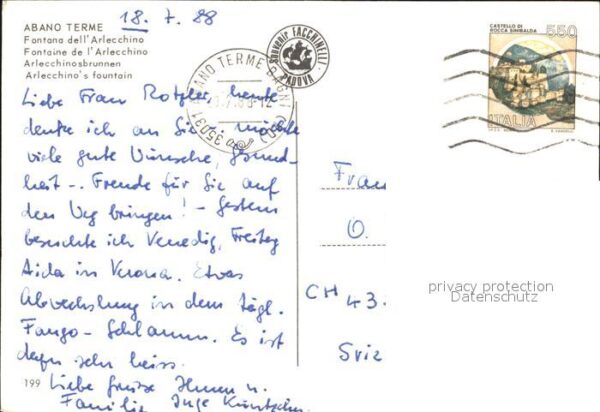 18. 7. 88
ABANO TERME
Fontana dell'Arlecchino
Fontaine de l'Arlecchino
Arlecchinosbrunnen
Arlecchino's fountain
Souvenir FACCHINELLI
PADOVA
35031 ABANO TERME BAGNI (PD)
CASTELLO DI
ROCCA SINIBALDA
550
ITALIA
Liebe Frau Rotzler, heute
denke ich an Sie, möchte
viele gute Wünsche, Gesund-
heit - Freude für Sie auf
den Weg bringen! - Gestern
besuchte ich Venedig, Freitag
Aida in Verona. Etwas
Abwechslung in dem tägl.
Fango-Schlamm. Es ist
sehr heiss.
Liebe Grüsse Ihnen u.
Familie Inge
Frau
O.
CH 43
Sviz
privacy protection
Datenschutz
199